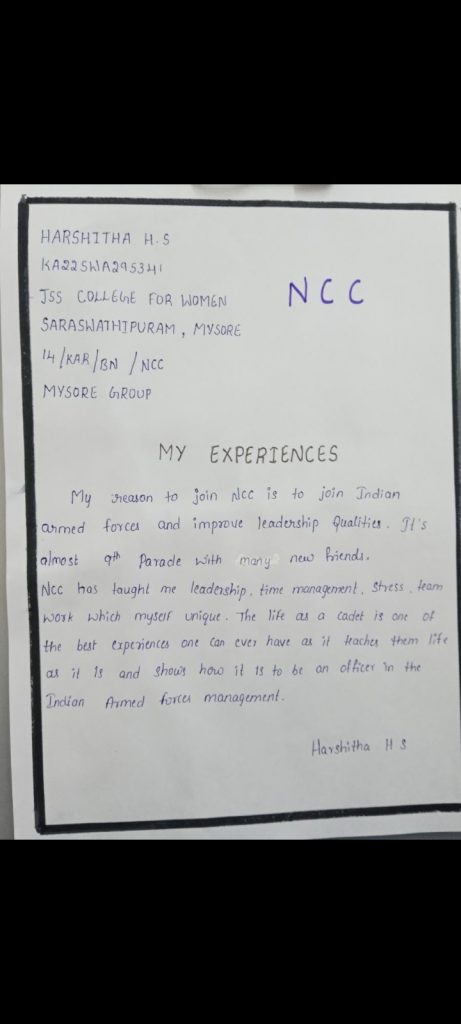 HARSHITHA H.S
KA22SWA295341
JSS COLLEGE FOR WOMEN
NCC
SARASWATHIPURAM, MYSORE
14/KAR/BN/NCC
MYSORE GROUP
MY EXPERIENCES
My reason to join NCC is to join Indian
armed forces and improve leadership Qualities. It's
almost 9th Parade with many new friends.
Ncc has taught me leadership, time management, stress, team
work which myself unique. The life as a cadet is one of
the best experiences one can ever have as it teaches them life
as it is and shows how it is to be an officer in the
Indian Armed forces management.
Harshitha H S